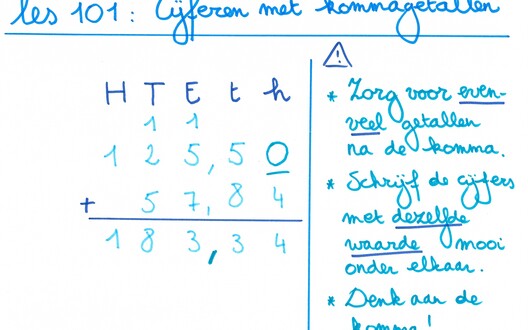 les 101: Cijferen met kommagetallen
H T E t h
1 1
1 2 5, 5 0
+ 5 7, 8 4
1 8 3, 3 4
⚠
* Zorg voor even-
veel getallen
na de komma.
* Schrijf de cijfers
met dezelfde
waarde mooi
onder elkaar.
* Denk aan de
komma!